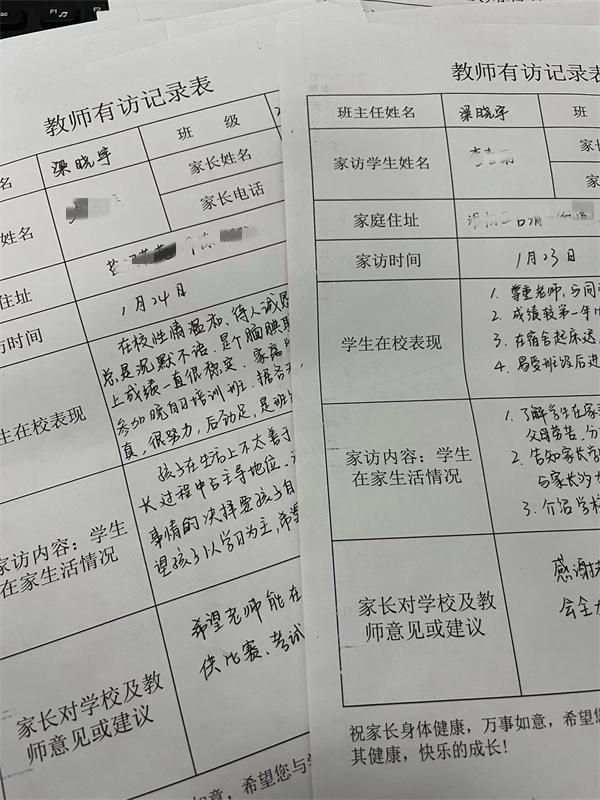 教师有访记录表
名 梁晓宇 班 级
家长姓名
姓名
家长电话
住址
访时间 1月24日
生在校表现
在校性情温和、待人诚恳
总是沉默不语,是个腼腆
上成绩一直很稳定.家离
参加晚自习培训班.据
真,很努力,后劲足,是班
家访内容:学生
在家生活情况
孩子在生活上不太善于
长过程中占主导地位.
事情的决择要孩子自
望孩子以学习为主,希
家长对学校及教
师意见或建议
希望老师能在
供比赛、考试
如意,希望您与
教师有访记录表
班主任姓名 梁晓宇 班
家访学生姓名
家长
家庭住址
家访时间 1月23日
学生在校表现
1. 尊重老师,与同
2. 成绩较第一年
3. 在宿舍起床迟
4. 易受班级后进
家访内容:学生
在家生活情况
1. 了解学生在家
父母劳苦、分
2. 告知家长
与家长沟
3. 介绍学校
家长对学校及教
师意见或建议
感谢老
会全力
祝家长身体健康,万事如意,希望您
其健康,快乐的成长!